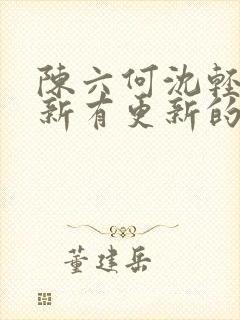 陳六何沈輕
新有更新的
董建岳